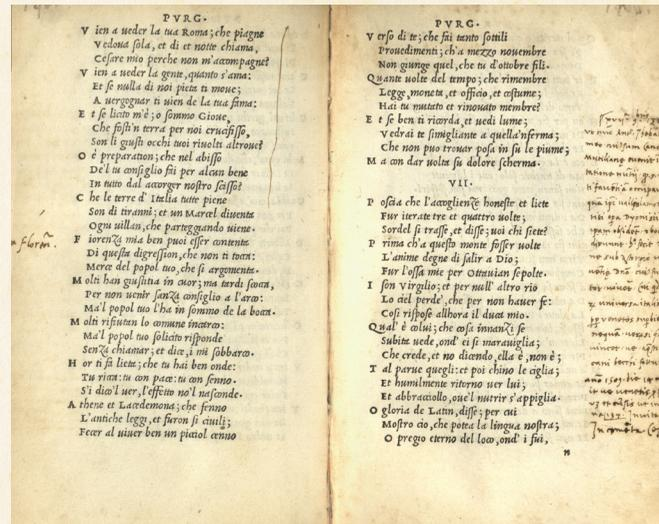 PVRG.
V ien a ueder la tua Roma; che piagne
Vedoua sola, et di et notte chiama,
Cesare mio perche non m'accompagne?
V ien a ueder la gente, quanto s'ama:
Et se nulla di noi pieta ti moue;
A uergognar ti uien de la tua fama:
E t se licito m'è; o sommo Gioue,
Che fosti'n terra per noi crucifisso,
Son li giusti occhi tuoi riuolti altroue?
O è preparation; che nel abisso
De'l tu consiglio fai per alcun bene
In tutto dal accorger nostro scisso?
C he le terre d'Italia tutte piene
Son di tiranni; et un Marcel diuenta
Ogni uillan, che parteggiando uiene.
F iorenza mia ben puoi esser contenta
Di questa digression, che non ti tocca:
Merce del popol tuo, che si argomenta.
M olti han giustitia in cuor; ma tardi scocca,
Per non uenir sanza consiglio a l'arco:
Ma'l popol tuo l'ha in sommo de la bocca.
M olti rifiutan lo comune incarco:
Ma'l popol tuo solicito risponde
Senza chiamar; et dice, i mi sobbarco.
H or ti fa lieta; che tu hai ben onde:
Tu ricca: tu con pace: tu con senno.
S'i dico'l uer, l'effetto no'l nasconde.
A thene et Lacedemona; che fenno
L'antiche leggi, et furon si ciuili;
Fecer al uiuer ben un picciol cenno
PVRG.
V erso di te; che fai tanto sottili
Prouedimenti; ch'a mezzo nouembre
Non giunge quel, che tu d'ottobre fili.
Quante uolte del tempo; che rimembre
Legge, moneta, et officio, et costume;
Hai tu mutato et rinouato membre?
E t se ben ti ricorda, et uedi lume;
Vedrai te simigliante a quella'nferma;
Che non puo trouar posa in su le piume;
M a con dar uolta su dolore scherma.
VII.
P oscia che l'accoglienze honeste et liete
Fur iterate tre et quattro uolte;
Sordel si trasse, et disse; uoi chi siete?
P rima ch'a questo monte fosser uolte
L'anime degne di salir a Dio;
Fur l'ossa mie per Ottauian sepolte.
I son Virgilio; et per null'altro rio
Lo ciel perde', che per non hauer fe:
Cosi rispose allhora il duca mio.
Qual'è colui; che cosa innanzi se
Subita uede, ond'ei si marauiglia;
Che crede, et no dicendo, ella è, non è;
T al parue quegli: et poi chino le ciglia;
Et humilmente ritorno uer lui;
Et abbracciollo, oue'l nutrir s'appiglia.
O gloria de Latin, disse; per cui
Mostro cio, che potea la lingua nostra;
O pregio eterno del loco, ond'i fui,
n